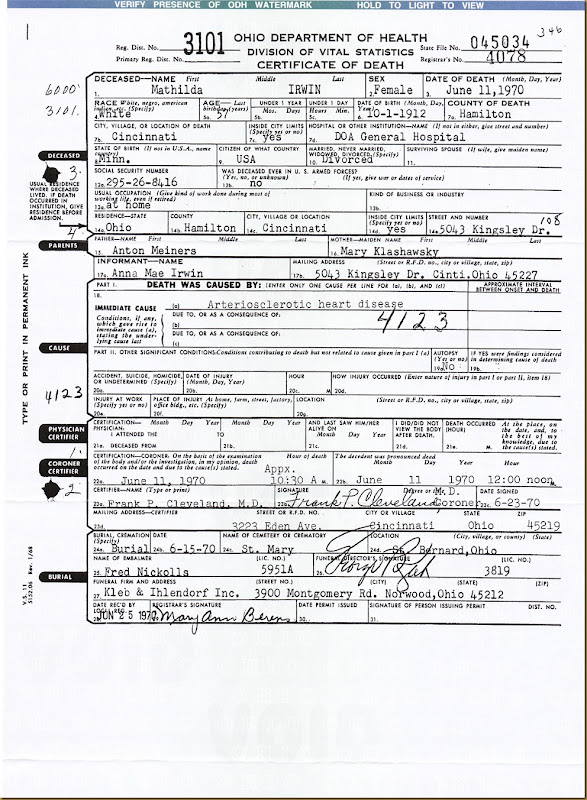 VERIFY PRESENCE OF ODH WATERMARK HOLD TO LIGHT TO VIEW
346
Reg. Dist. No. 3101 OHIO DEPARTMENT OF HEALTH
DIVISION OF VITAL STATISTICS State File No. 045034
Primary Reg. Dist. No. CERTIFICATE OF DEATH Registrar's No. 4078
6000
3101.
DECEASED—NAME First Middle Last SEX DATE OF DEATH (Month, Day, Year)
1. Mathilda IRWIN 2. Female 3. June 11,1970
RACE White, negro, american indian, etc. (Specify) AGE—Last birthday (years) UNDER 1 YEAR UNDER 1 DAY DATE OF BIRTH (Month, Day, Year) COUNTY OF DEATH
Mos. Days Hours Min.
4. White 5a. 57 5b. 5c. 6. 10-1-1912 7a. Hamilton
CITY, VILLAGE, OR LOCATION OF DEATH INSIDE CITY LIMITS (Specify yes or no) HOSPITAL OR OTHER INSTITUTION—NAME (If not in either, give street and number)
7b. Cincinnati 7c. yes 7d. DOA General Hospital
DECEASED
STATE OF BIRTH (If not in U.S.A., name country) CITIZEN OF WHAT COUNTRY MARRIED, NEVER MARRIED, WIDOWED, DIVORCED, (Specify) SURVIVING SPOUSE (If wife, give maiden name)
8. Minn. 9. USA 10. Divorced 11.
3.
USUAL RESIDENCE WHERE DECEASED LIVED. IF DEATH OCCURRED IN INSTITUTION, GIVE RESIDENCE BEFORE ADMISSION.
SOCIAL SECURITY NUMBER WAS DECEASED EVER IN U. S. ARMED FORCES?
(Yes, no, or unknown) (If yes, give war or dates of service)
12a. 295-26-8416 12b. no
USUAL OCCUPATION (Give kind of work done during most of working life, even if retired) KIND OF BUSINESS OR INDUSTRY
13a. at home 13b.
RESIDENCE—STATE COUNTY CITY, VILLAGE OR LOCATION INSIDE CITY LIMITS (Specify yes or no) STREET AND NUMBER 108
4
14a. Ohio 14b. Hamilton 14c. Cincinnati 14d. yes 14e. 5043 Kingsley Dr.
PARENTS
FATHER—NAME First Middle Last MOTHER—MAIDEN NAME First Middle Last
15. Anton Meiners 16. Mary Klashawsky
INFORMANT—NAME MAILING ADDRESS (Street or R.F.D. no., city or village, state, zip)
17a. Anna Mae Irwin 17b. 5043 Kingsley Dr. Cinti.Ohio 45227
PART I. DEATH WAS CAUSED BY: (ENTER ONLY ONE CAUSE PER LINE FOR (a), (b), AND (c)) APPROXIMATE INTERVAL BETWEEN ONSET AND DEATH
18.
IMMEDIATE CAUSE (a) Arteriosclerotic heart disease
Conditions, if any, which gave rise to immediate cause (a), stating the underlying cause last
DUE TO, OR AS A CONSEQUENCE OF:
(b) 4123
DUE TO, OR AS A CONSEQUENCE OF:
(c)
CAUSE
PART II. OTHER SIGNIFICANT CONDITIONS: Conditions contributing to death but not related to cause given in part I (a) AUTOPSY (Yes or no) IF YES were findings considered in determining cause of death
19a. No 19b.
4123
ACCIDENT, SUICIDE, HOMICIDE, OR UNDETERMINED (Specify) DATE OF INJURY (Month, Day, Year) HOUR HOW INJURY OCCURRED (Enter nature of injury in part I or part II, item 18)
20a. 20b. 20c. M. 20d.
INJURY AT WORK (Specify yes or no) PLACE OF INJURY At home, farm, street, factory, office bldg., etc. (Specify) LOCATION (Street or R.F.D. no., city or village, state, zip)
20e. 20f. 20g.
PHYSICIAN CERTIFIER
CERTIFICATION— Month Day Year Month Day Year AND LAST SAW HIM/HER ALIVE ON Month Day Year I DID/DID NOT VIEW THE BODY AFTER DEATH. DEATH OCCURRED (HOUR) At the place, on the date, and, to the best of my knowledge, due to the cause(s) stated.
PHYSICIAN: I ATTENDED THE TO
21a. DECEASED FROM 21b. 21c. 21d. 21e. M.
CORONER CERTIFIER
CERTIFICATION—CORONER: On the basis of the examination of the body and/or the investigation, in my opinion, death occurred on the date and due to the cause(s) stated. Hour of death The decedent was pronounced dead
Month Day Year Hour
Appx.
22a. June 11, 1970 10:30 A M. 22b. June 11 1970 12:00 noon
2
CERTIFIER—NAME (Type or print) SIGNATURE Degree or title DATE SIGNED
M.D.
22c. Frank P. Cleveland, M.D. 22d. Frank P. Cleveland Coroner 22e. 6-23-70
MAILING ADDRESS—CERTIFIER STREET OR R.F.D. NO. CITY OR VILLAGE STATE ZIP
23d. 3223 Eden Ave. Cincinnati Ohio 45219
BURIAL, CREMATION (Specify) DATE NAME OF CEMETERY OR CREMATORY LOCATION (City, village, or county) (State)
24a. Burial 24b. 6-15-70 24c. St. Mary 24d. St. Bernard,Ohio
NAME OF EMBALMER (LIC. NO.) FUNERAL DIRECTOR'S SIGNATURE (LIC. NO.)
25. Fred Nickolls 5951A 26. 3819
BURIAL
FUNERAL FIRM AND ADDRESS (STREET NO.) (CITY) (STATE) (ZIP)
27. Kleb & Ihlendorf Inc. 3900 Montgomery Rd. Norwood,Ohio 45212
DATE REC'D BY LOCAL REG. REGISTRAR'S SIGNATURE DATE PERMIT ISSUED SIGNATURE OF PERSON ISSUING PERMIT DIST. NO.
28. JUN 25 1970 29. Mary Ann Berens 30. 31.
TYPE OR PRINT IN PERMANENT INK
V.S. 11 Rev. 1/68
5152.06